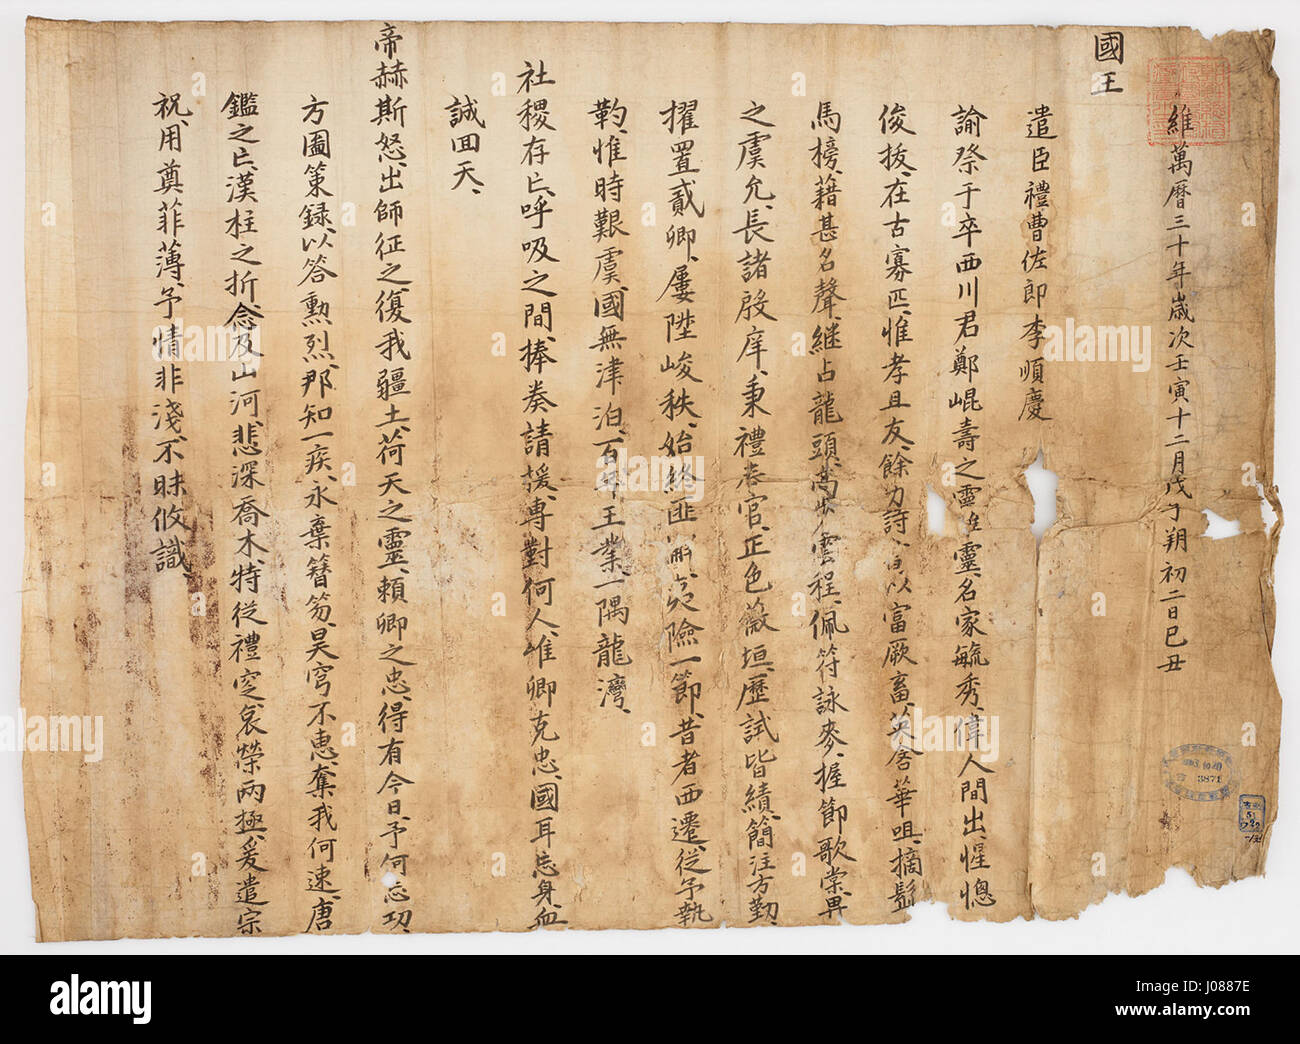 維萬曆三十年歲次壬寅十二月戊子朔初二日己丑
國王
遣臣禮曹佐郎李順慶
諭祭于卒西川君鄭崐壽之靈惟靈、名家毓秀、偉人間出、惺憁
俊拔、在古寡匹、惟孝且友、餘力詩、以富厥畜、英含華咀、摘髭
馬榜、藉甚名聲、継占龍頭、高步雲程、佩符詠麥、握節歌棠、畀
之虞允、長諸殷庠、秉禮春官、正色薇垣、歷試皆績、簡注方勤、
擢置貳卿、屢陞峻秩、始終匪 險一節、昔者西遷、從予執
靮、惟時艱虞、國無津泊、百年王業、一隅龍灣、
社稷存亡、呼吸之間、捧奏請援、專對何人、惟卿克忠、國耳忘身、血
誠回天、
帝赫斯怒、出師征之、復我疆土、荷天之靈、賴卿之忠、得有今日、予何忘功、
方圖策録、以答勲烈、那知一疾、永棄簪笏、昊穹不惠、奪我何速、唐
鑑之亡、漢柱之折、念及山河、悲深喬木、特従禮窆、哀榮兩極、爰遣宗
祝、用奠菲薄、予情非淺、不昧攸識、
3871
alamy
Image ID: J0887E
www.alamy.com